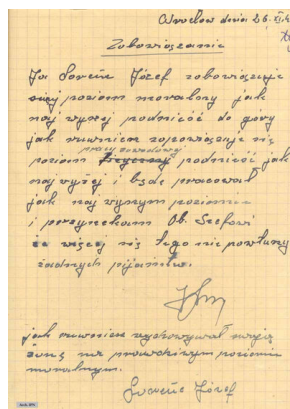 Wrocław dnia 26. XI.
Zobowiązanie
Ja Józef zobowiązuje
swój poziom moralny jak
naj wyżej podnieść do góry
jak ruwnierz zopowiązuje się
poziom podnieść jak
naj wyżej i będe pracował
jak naj wyszym poziomie
i przyrzekam Ob. Szefowi
że więcej się tego nie powtuży
żadnych pijaństw.
jak ruwnierz wychowywał swoją
żonę na prawdziwym poziomie
moralnym.
Józef